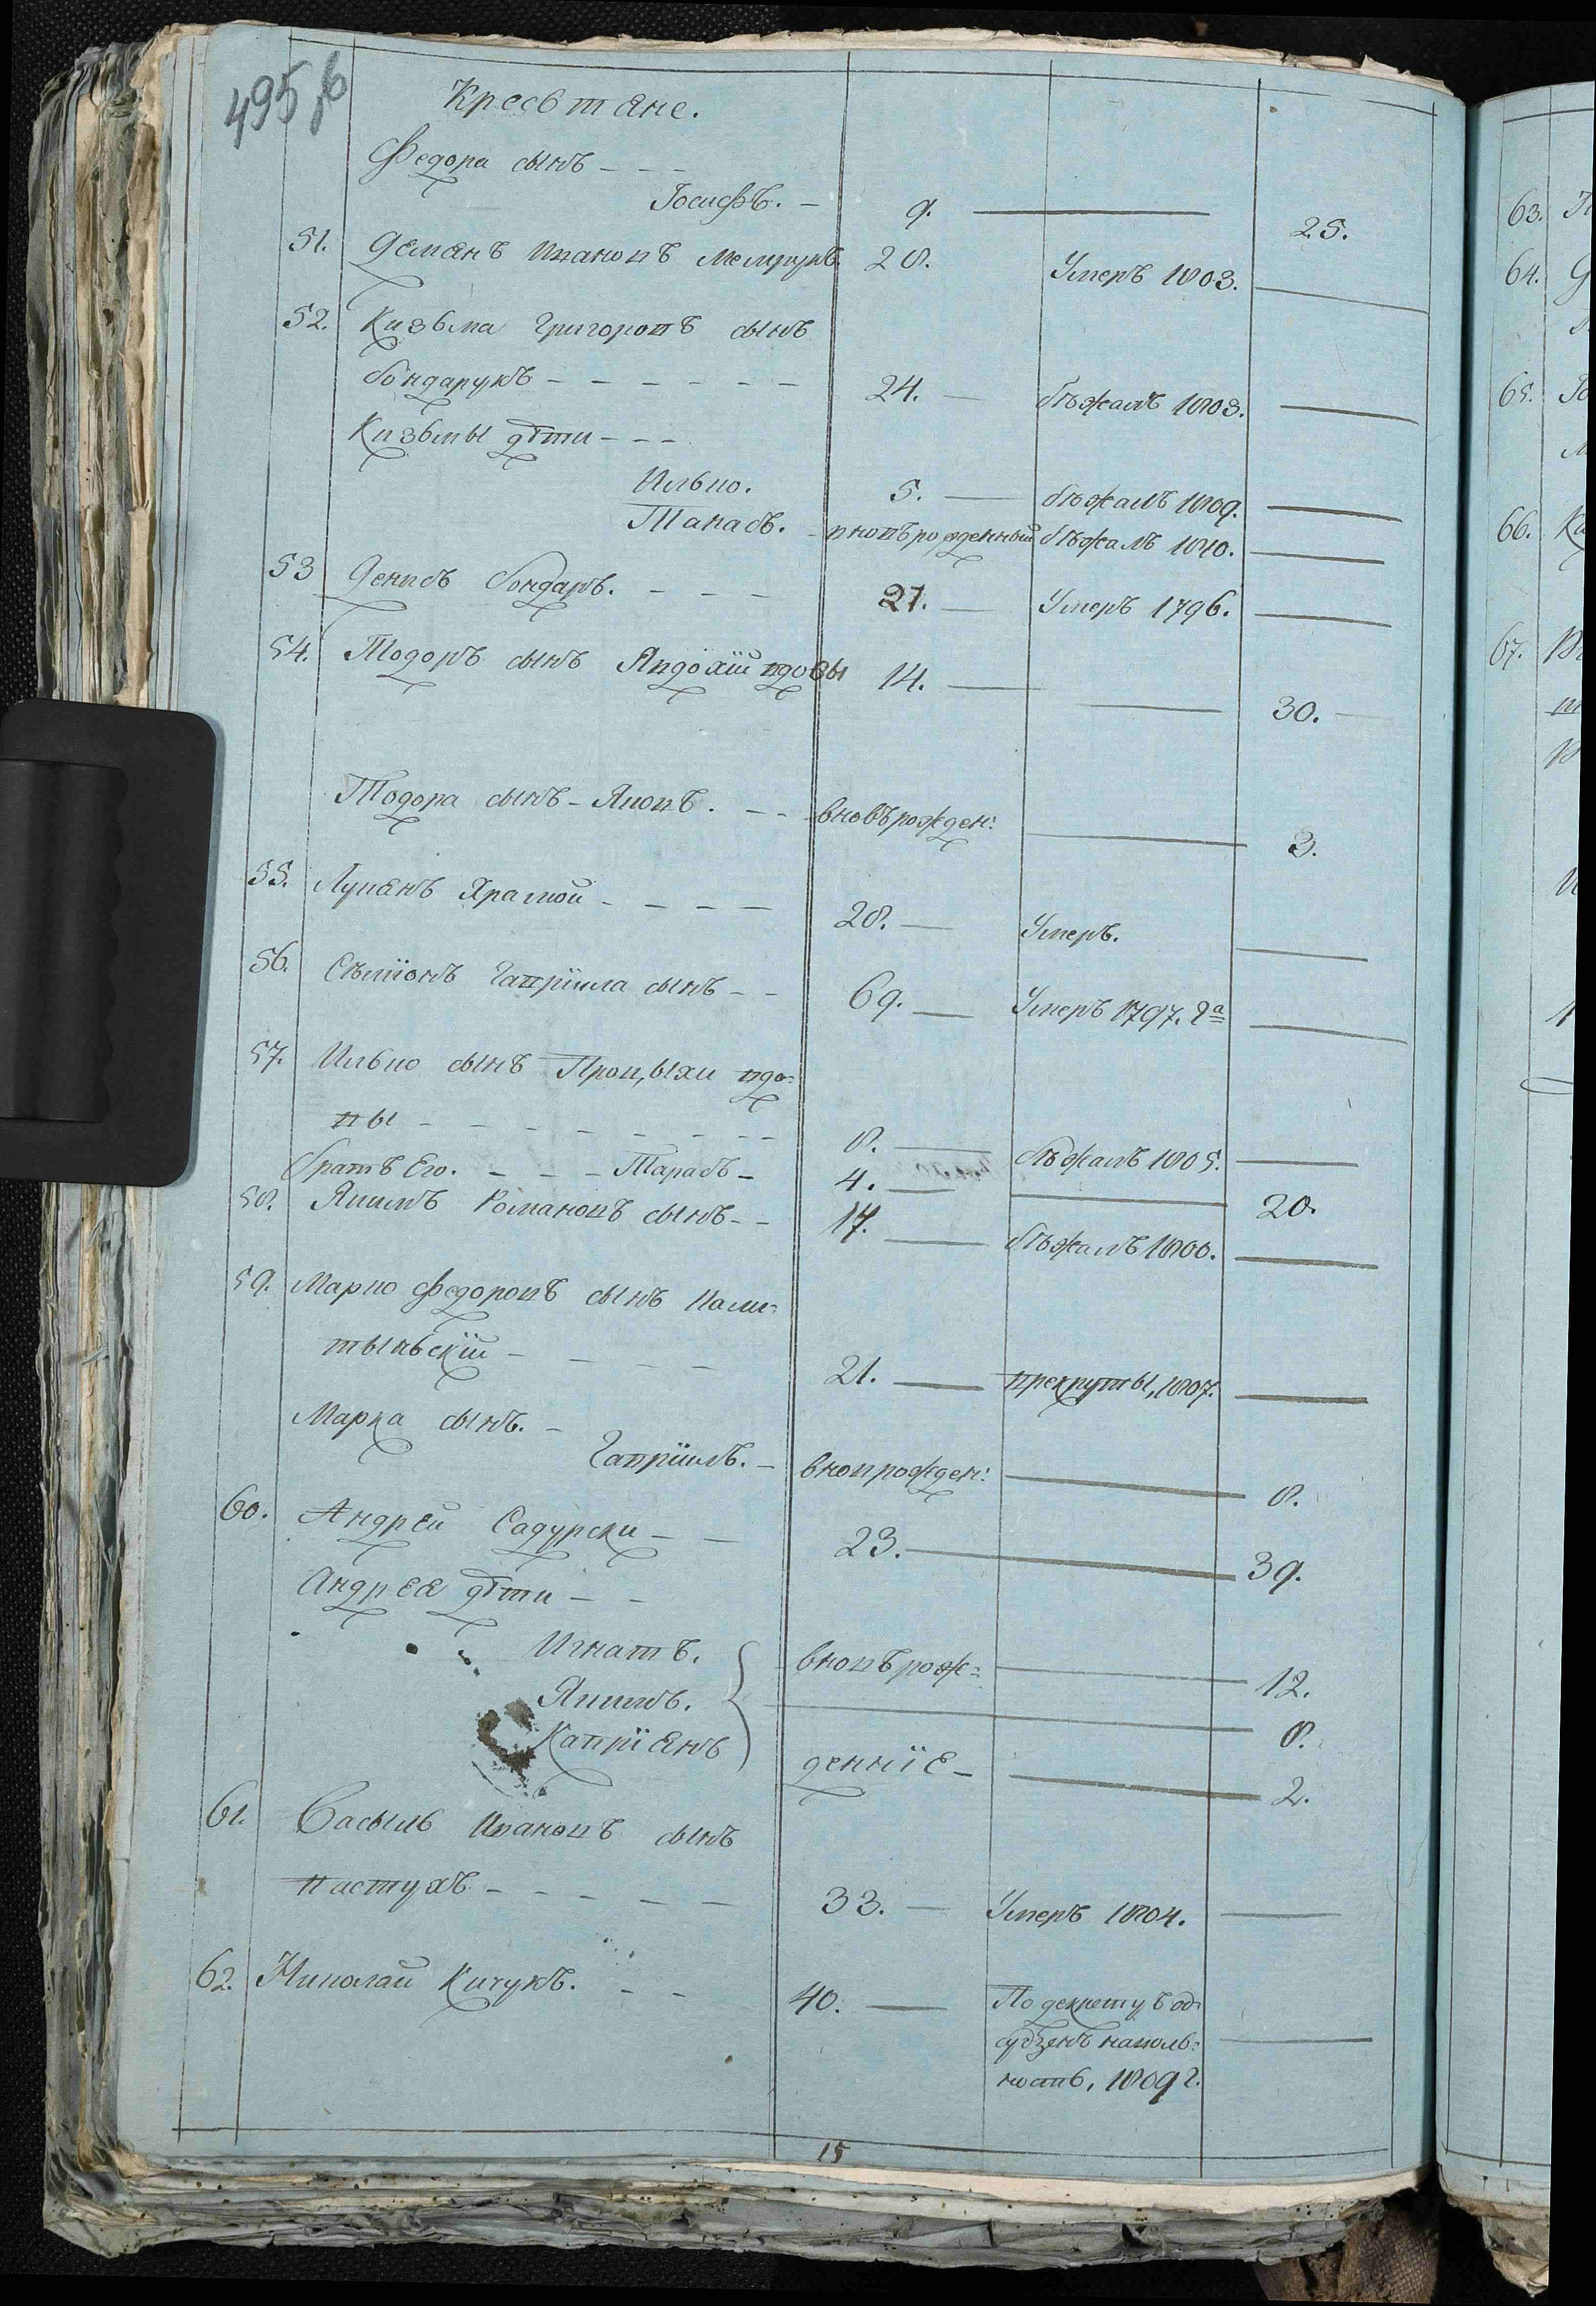 495 б
Кресьтяне.
Федора сынъ - - -
Іосифъ. - 9. 25.
51. Демянъ Ивановъ 28. Умеръ 1803.
52. Кузьма Григоровъ сынъ
бондарукъ - - - - - - 24. бѣжалъ 1803.
Кузьмы дѣти - - -
Илько. 5. бѣжалъ 1809.
Танасъ. - вновърожденный бѣжалъ 1810.
53 Денисъ бондаръ. - - - 21. Умеръ 1796.
54. Тодоръ сынъ Явдохiи вдовы 14. 30.
Тодора сынъ - Яковъ. - - вновърожден: 3.
55. Лукянъ - - - - 28. Умеръ.
56. Сѣмiонъ Гаврiила сынъ - - 69. Умеръ 1797. га
57. Илько сынъ Процыхи вдо=
вы - - - - - - - - 8. бѣжалъ 1805.
братъ Его. - - - Тарасъ - 4. 20.
58. Якимъ Романовъ сынъ - - 17. бѣжалъ 1800.
59. Марко Федоровъ сынъ Кали=
- - - - 21. врекруты, 1807.
Марка сынъ. -
Гаврiилъ. - вноврожден: 8.
60. Андрей Садурски - - 23. 39.
Андрея дѣти - -
Игнатъ. вновърож= 12.
Якимъ. 8.
Капрiянъ денiе - 2.
61. Васыль Ивановъ сынъ
пастухъ - - - - - 33. Умеръ 1804.
62. Николай Кичукъ. - - 40. По декрету од=
суђенъ наволь=
ность, 1809 г.
15
63.
64.
65.
66.
67.